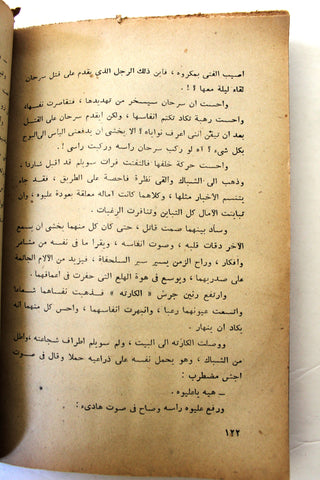 أصيب الفتى بمكروه ، فأين ذلك الرجل الذي يقدم على قتل سرحان
لقاء ليلة معها ؟ ! .
وأحست أن سرحان سيسخر من تهديدها ، فتقاصرت نفسها ،
وأحست رهبة تكاد تكتم أنفاسها ، ولكن أيقدم سرحان على القتل
بعد أن تيقن أنني أعرف نواياه ؟ ألا يخشى أن يدفعني اليأس الى البوح
بكل شيء ؟ آه لو ركب سرحان رأسه وركبت رأسي !.
وأحست حركة خلفها ، فالتفتت فرأت سويلم قد أقبل شاردا ،
وذهب الى الشباك والقى نظرة فاحصة على الطريق ، فقد جاء
يتنسم الأخبار مثلها ، وكلاهما كانت آماله معلقة بعودة عليوه ، وان
تباينت الآمال كل التباين وتنافرت الرغبات .
وساد بينهما صمت قاتل ، حتى كان كل منهما يخشى أن يسمع
الآخر دقات قلبه ، وصوت أنفاسه ، ويقرأ ما في نفسه من مشاعر
وأفكار ، وراح الزمن يسير سير السلحفاة ، فيزيد من الآلام الجاثمة
على صدريهما ، ويوسع في هوة الهلع التي حفرت في أعماقهما .
وارتفع رنين جرس « الكارته » فذهبت نفساهما شعاعا
واتسعت عيونهما رعبا ، وانبهرت أنفاسهما ، وأحس كل منهما أنه
يكاد أن ينهار .
ووصلت الكارته الى البيت ، ولم سويلم أطراف شجاعته ، وأطل
من الشباك ، وهو يحمل نفسه على ذراعيه حملا وقال في صوت
أجش مضطرب :
ـ هيه ياعليوه .
ورفع عليوه رأسه وصاح في صوت هادىء :
١٢٢